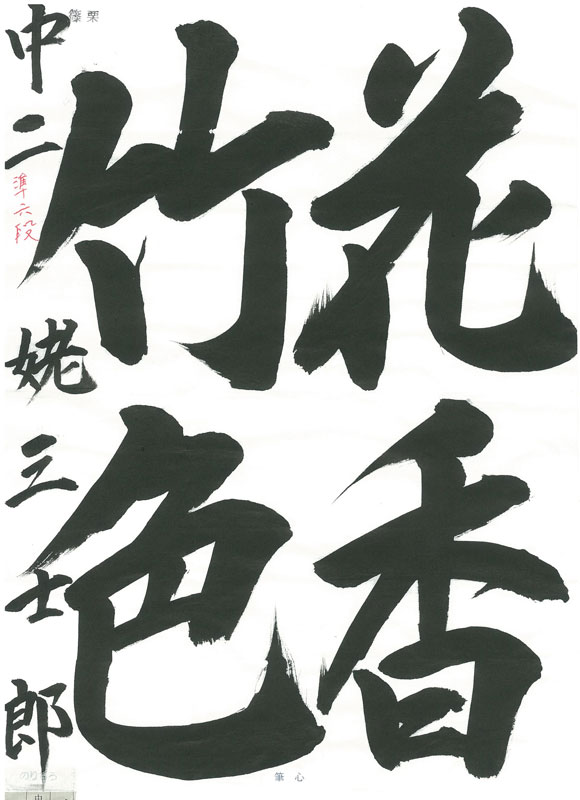 花香
竹色
中二 姥三士郎
準六段
篠栗
筆心
のりしろ